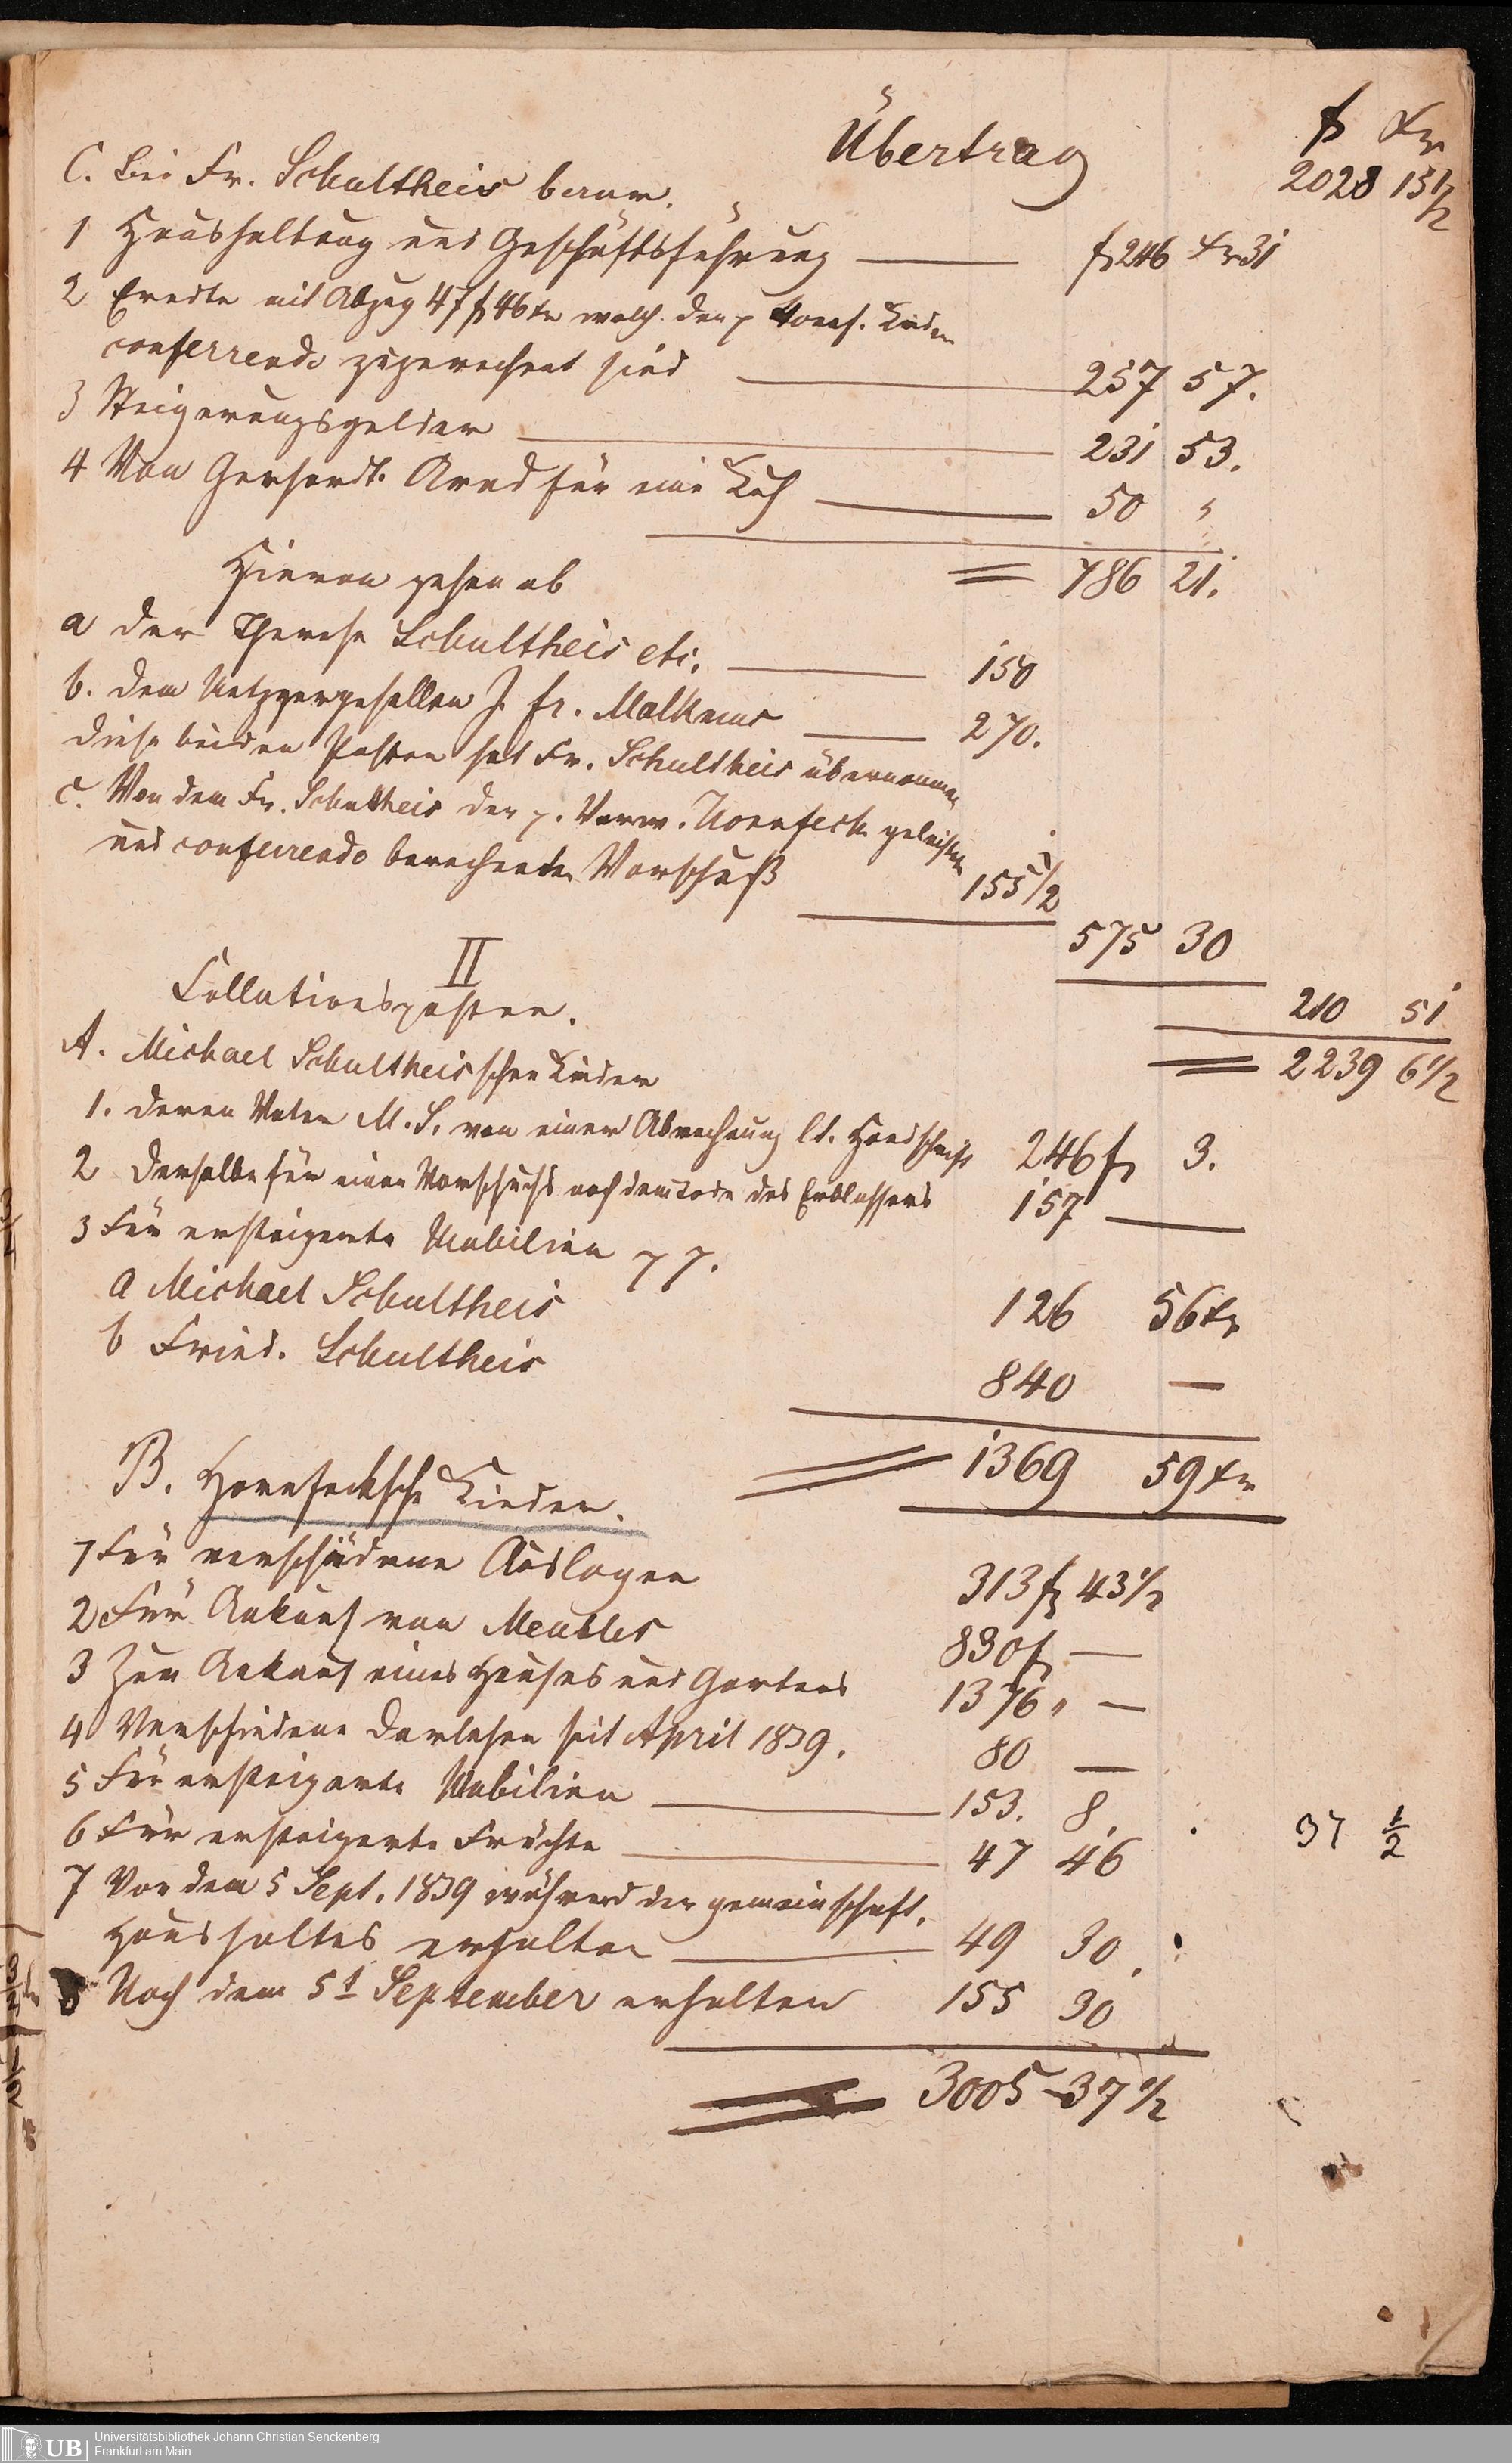 Übertrag
f xr
2028 15 1/2
C. bei Fr. Schultheis baar.
1 Haushaltung und Geschäftsführung f 246 xr 31
2 Erndte mit Abzug 47 f 46 xr welch. den p Hornf. Kinder
conferrendo zugerechnet sind 257 57.
3 Steigerungsgelder 231 53.
4 Von Gerhardt. Arnd für eine Kuh 50 "
= 786 21.
Hiervon gehen ab
a der Therese Schultheis etc. 150
b. dem Metzgergesellen J. Fr. Malkmus 270.
diese beiden Posten hat Fr. Schultheis übernommen
c. Von dem Fr. Schultheis der p. Verw. Hornfeck geleisteter
und conferrendo berechneter Vorschuß 155 1/2
575 30
210 51
= 2239 6 1/2
II
Collationsposten.
A. Michael Schultheisschen Kinder
1. deren Vater M. S. von einer Abrechnung lt. Handschrift 246 f 3.
2 Derselbe für einen Vorschuß nach dem Tode des Erblassers 157 —
3 Für ersteigerte Mobilien pp.
a Michael Schultheis 126 56 xr
b Fried. Schultheis 840 —
= 1369 59 xr
B. Hornfecksche Kinder.
1 Für verschiedene Auslagen 313 f 43 1/2
2 Für Ankauf von Meubles 830 f —
3 Zum Ankauf eines Hauses und Gartens 1376 " —
4 Verschiedene Darlehen seit April 1839. 80 —
5 Für ersteigerte Mobilien 153. 8.
37 1/2
6 Für ersteigerte Früchte 47 46
7 Vor dem 5 Sept. 1839 während der gemeinschaft.
Haushaltes erhalten 49 30.
8 Nach dem 5t September erhalten 155 30
= 3005 - 37 1/2
UB
Universitätsbibliothek Johann Christian Senckenberg
Frankfurt am Main